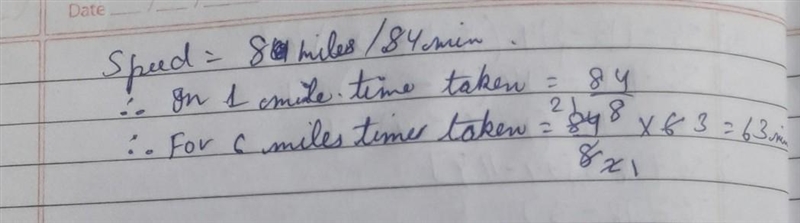 Date
Speed = 8 miles / 84 min.
∴ In 1 mile time taken = 84/8
∴ For 6 miles time taken = 84/8 × 6 3 = 63 min